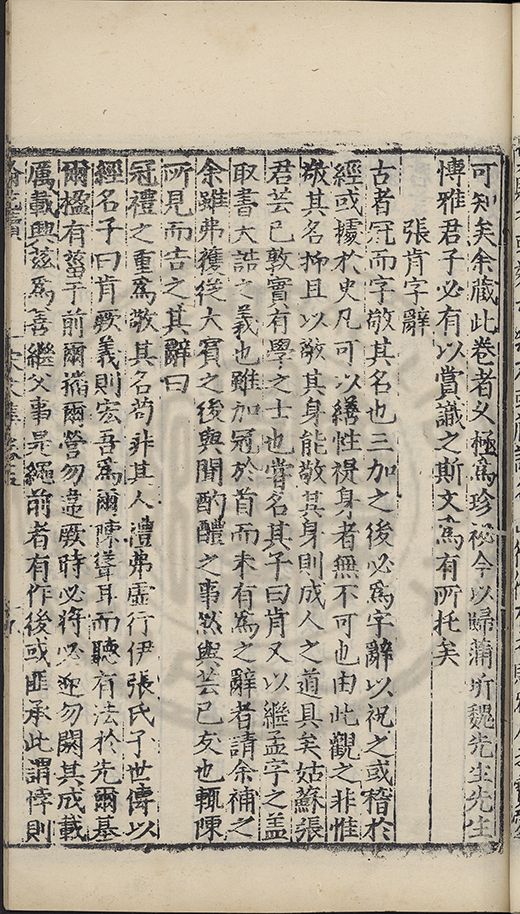 可知矣余藏此卷者久極為珍祕今以歸蒲圻魏先生先生
博雅君子必有以賞識之斯文為有所托矣
張肯字辭
古者冠而字敬其名也三加之後必為字辭以祝之或稽於
經或據於史凡可以繕性禔身者無不可也由此觀之非惟
敬其名抑且以敬其身能敬其身則成人之道具矣姑蘇張
君芸已敦實有學之士也嘗名其子曰肯又以繼孟字之蓋
取書大誥之義也雖加冠於首而未有為之辭者請余補之
余雖弗獲從大賓之後與聞酌醴之事然與芸已友也輒陳
所見而吉之其辭曰
冠禮之重為敬其名苟非其人禮弗虛行伊張氏子世傳以
經名子曰肯厥義則宏吾為爾陳聳耳而聽有法於先爾基
爾楹有菑于前爾播爾營勿違厥時必將必迎勿闕其成載
厲載興茲為善繼父事是繩前者有作後或匪承此謂悖則